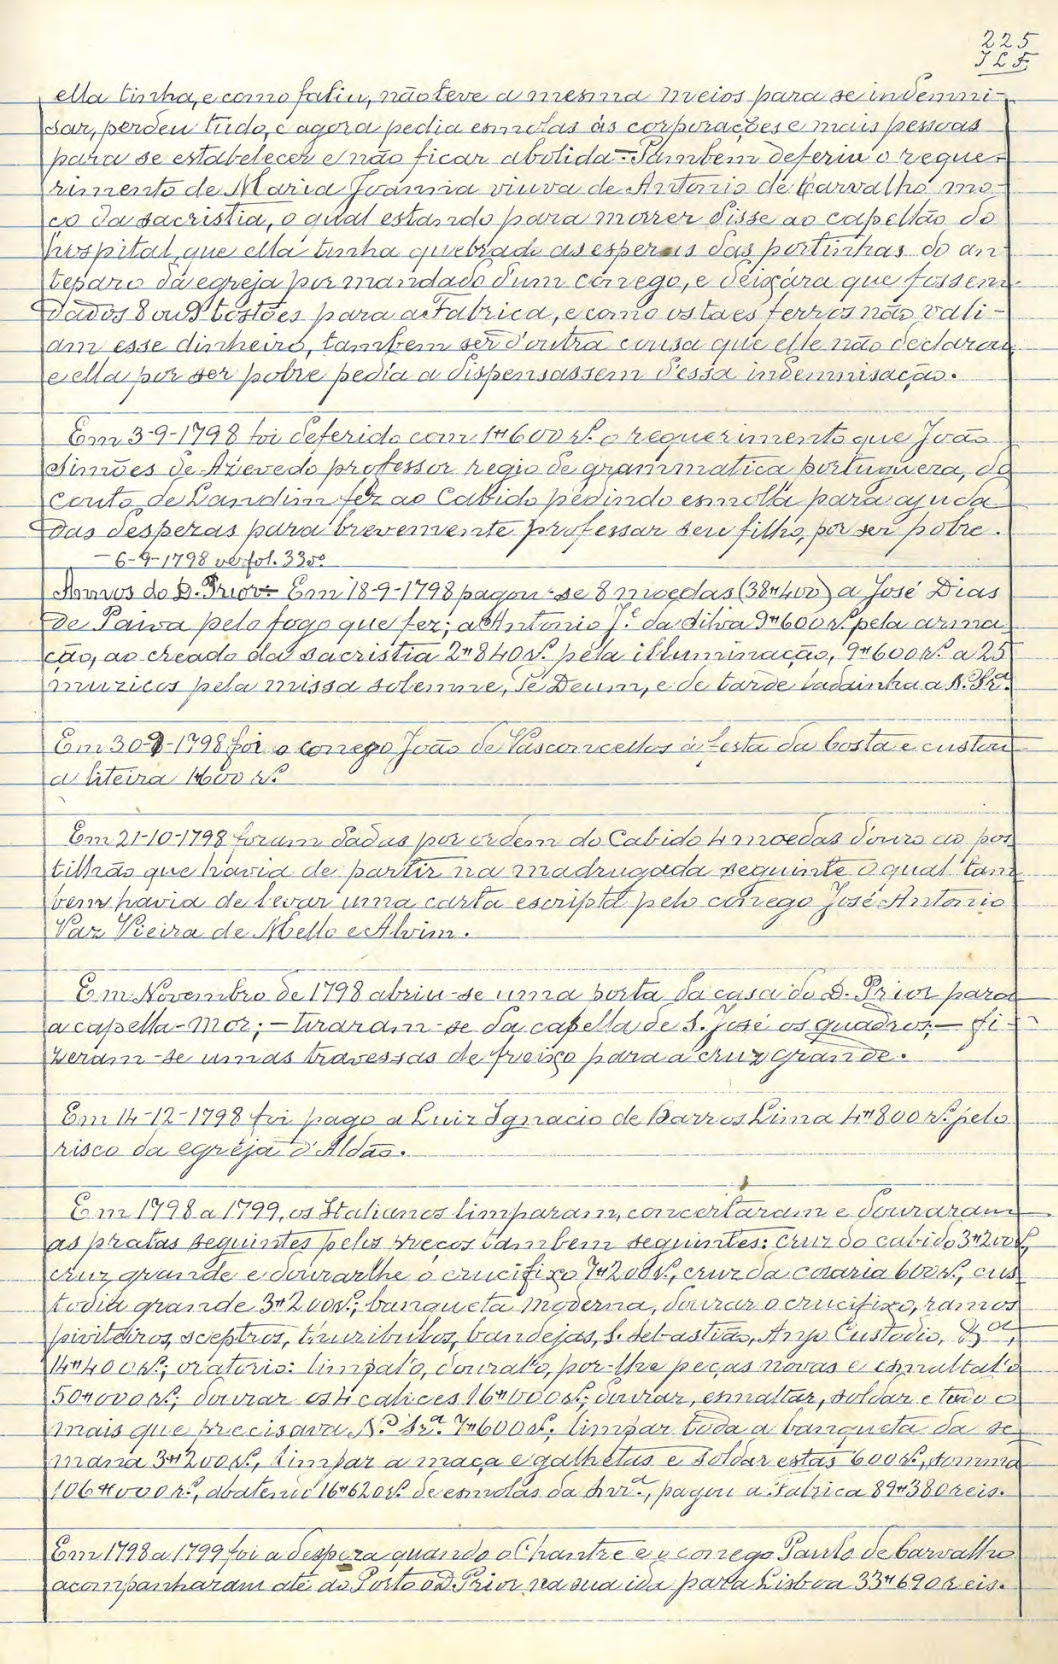 225
J L F.
ella tinha, e como faliu, não teve a mesma meios para se indemni-
sar, perdeu tudo, e agora pedia esmolas ás corporações e mais pessoas
para se estabelecer e não ficar abolida.— Tambem deferiu o reque-
rimento de Maria Joanna viuva de Antonio de Carvalho mo-
ço da sacristia, o qual estando para morrer disse ao capellão do
hospital, que ella tinha quebrado as esperas das portinhas do an-
teparo da egreja por mandado d'um conego, e deixára que fossem
dados 8 ou 9 tostões para a Fabrica, e como os taes ferros não vali-
am esse dinheiro, tambem ser d'outra cousa que elle não declarou
e ella por ser pobre pedia a dispensassem dessa indemnisação.
Em 3-9-1798 foi deferido com 1#600 rs. o requerimento que João
Simões de Azevedo professor regio de grammatica portugueza, do
couto de Landim fez ao Cabido pedindo esmola para ajuda
das despezas para brevemente professar seu filho, por ser pobre.
— 6-9-1798 ver fol. 33vo.
Annos do D. Prior.— Em 18-9-1798 pagou-se 8 moedas (38#400) a José Dias
de Paiva pelo fogo que fez; a Antonio J.e da Silva 9#600 rs. pela arma-
ção, ao creado da sacristia 2#840 rs. pela illuminação, 9#600 rs. a 25
muzicos pela missa solemne, Te Deum, e de tarde ladainha a N. Sra.
Em 30-9-1798 foi o conego João de Vasconcellos á festa da Costa e custou
a liteira 1#600 rs.
Em 21-10-1798 foram dadas por ordem do Cabido 4 moedas d'ouro ao pos-
tilhão que havia de partir na madrugada seguinte o qual tam-
bem havia de levar uma carta escripta pelo conego José Antonio
Vaz Vieira de Mello e Alvim.
Em Novembro de 1798 abriu-se uma porta da casa do D. Prior para
a capella-mor; — tiraram-se da capella de S. José os quadros; — fi-
zeram-se umas travessas de freixo para a cruz grande.
Em 14-12-1798 foi pago a Luiz Ignacio de Barros Lima 4#800 rs. pelo
risco da egreja d'Aldão.
Em 1798 a 1799, os Italianos limparam, concertaram e douraram
as pratas seguintes pelos preços tambem seguintes: cruz do cabido 3#200 rs.,
cruz grande e dourar-lhe o crucifixo 7#200 rs., cruz da coraria 600 rs., cus-
todia grande 3#200 rs.; banqueta moderna, dourar o crucifixo, ramos
piviteiros, sceptros, thuribulos, bandejas, S. Sebastião, Anjo Custodio,
14#400 rs.; oratorio: limpal'o, doural'o, por-lhe peças novas e esmaltal'o
50#000 rs.; dourar os 4 calices 16#000 rs.; dourar, esmaltar, soldar e tudo o
mais que precisava N.a Sr.a 7#600 rs.; limpar toda a banqueta da se-
mana 3#200 rs., limpar a maça e galhetas e soldar estas 600 rs., somma
106#000 rs., abatendo 16#620 rs. de esmolas da pagou a Fabrica 89#380 reis.
Em 1798 a 1799 foi a despeza quando o Chantre e o conego Paulo de Carvalho
acompanharam até ao Porto o D. Prior na sua ida para Lisboa 33#690 reis.